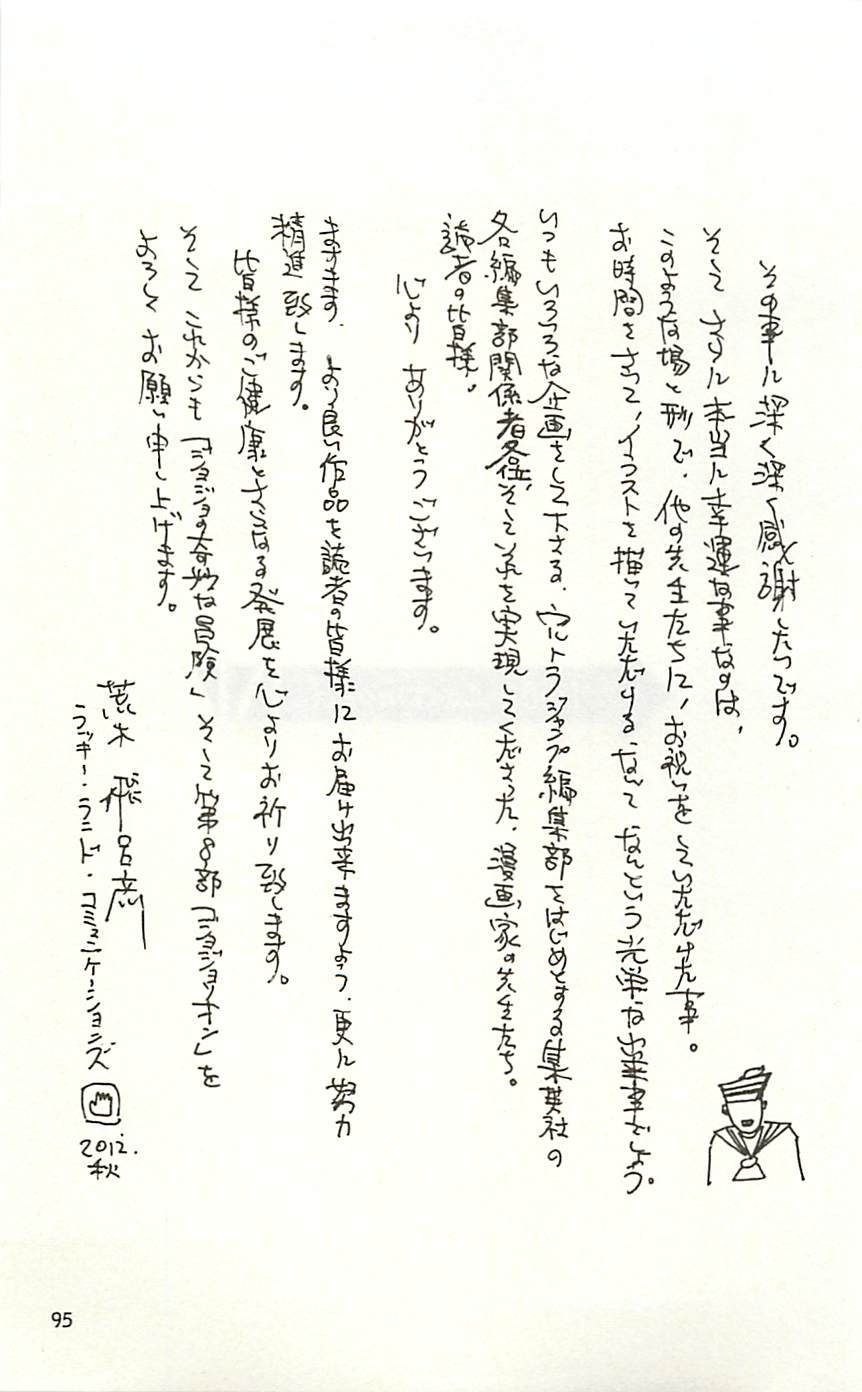 その事に深く深く感謝したいです。
そして さらに本当に幸運な事なのは、
このような場と形で、他の先生たちに、お祝いをしていただけた事。
お時間をさいて、イラストを描いていただけるなんて なんという光栄な出来事でしょう。
いつもいろいろな企画をして下さる、ウルトラジャンプ編集部をはじめとする集英社の
各編集部関係者各位、そしてそれを実現してくださった、漫画家の先生たち。
読者の皆様。
心より ありがとうございます。
ますます、より良い作品を読者の皆様にお届け出来ますよう、更に努力
精進致します。
皆様のご健康とさらなる発展を心よりお祈り致します。
そして これからも「ジョジョの奇妙な冒険」そして第8部「ジョジョリオン」を
よろしくお願い申し上げます。
荒木 飛呂彦
ラッキー・ランド・コミュニケーションズ
2012.
秋
95